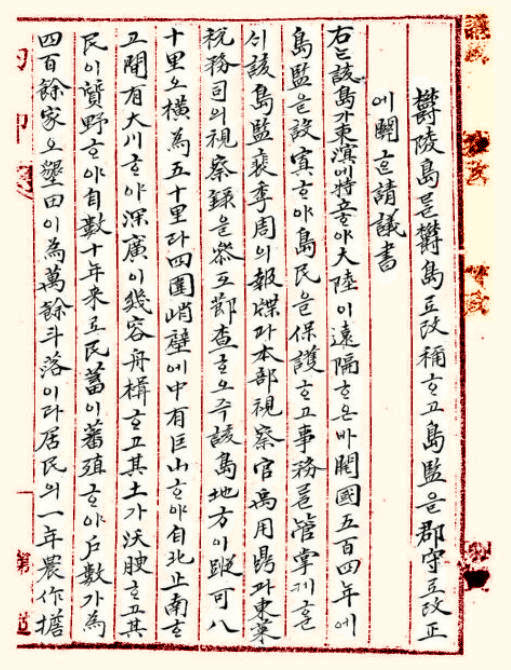 鬱陵島를鬱島로改稱하고島監을郡守로改正
에關한請議書
右는該島가東溟에特立하야大陸이遠隔하온바開國五百四年에
島監을設寘하야島民을保護하고事務를管掌케한
바該島監裵季周의報牒과本部視察官禹用鼎과東萊
稅務司의視察錄을參互鄭查하온즉該島地方이蹤可八
十里오橫爲五十里라四圍峭壁에中有巨山하야自北止南하
고間有大川하야深廣이幾容舟楫하고其土가沃腴하고其
民이質野하야自數十年來로民蓄이蕃殖하야戶數가爲
四百餘家오墾田이爲萬餘斗落이라居民의一年農作擔